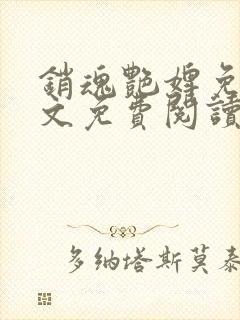 銷魂艷婢免
文免費閱讀
多納塔斯莫泰